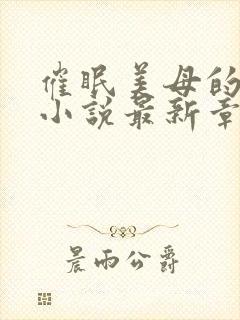 催眠美母的
小说最新章
晨雨公爵